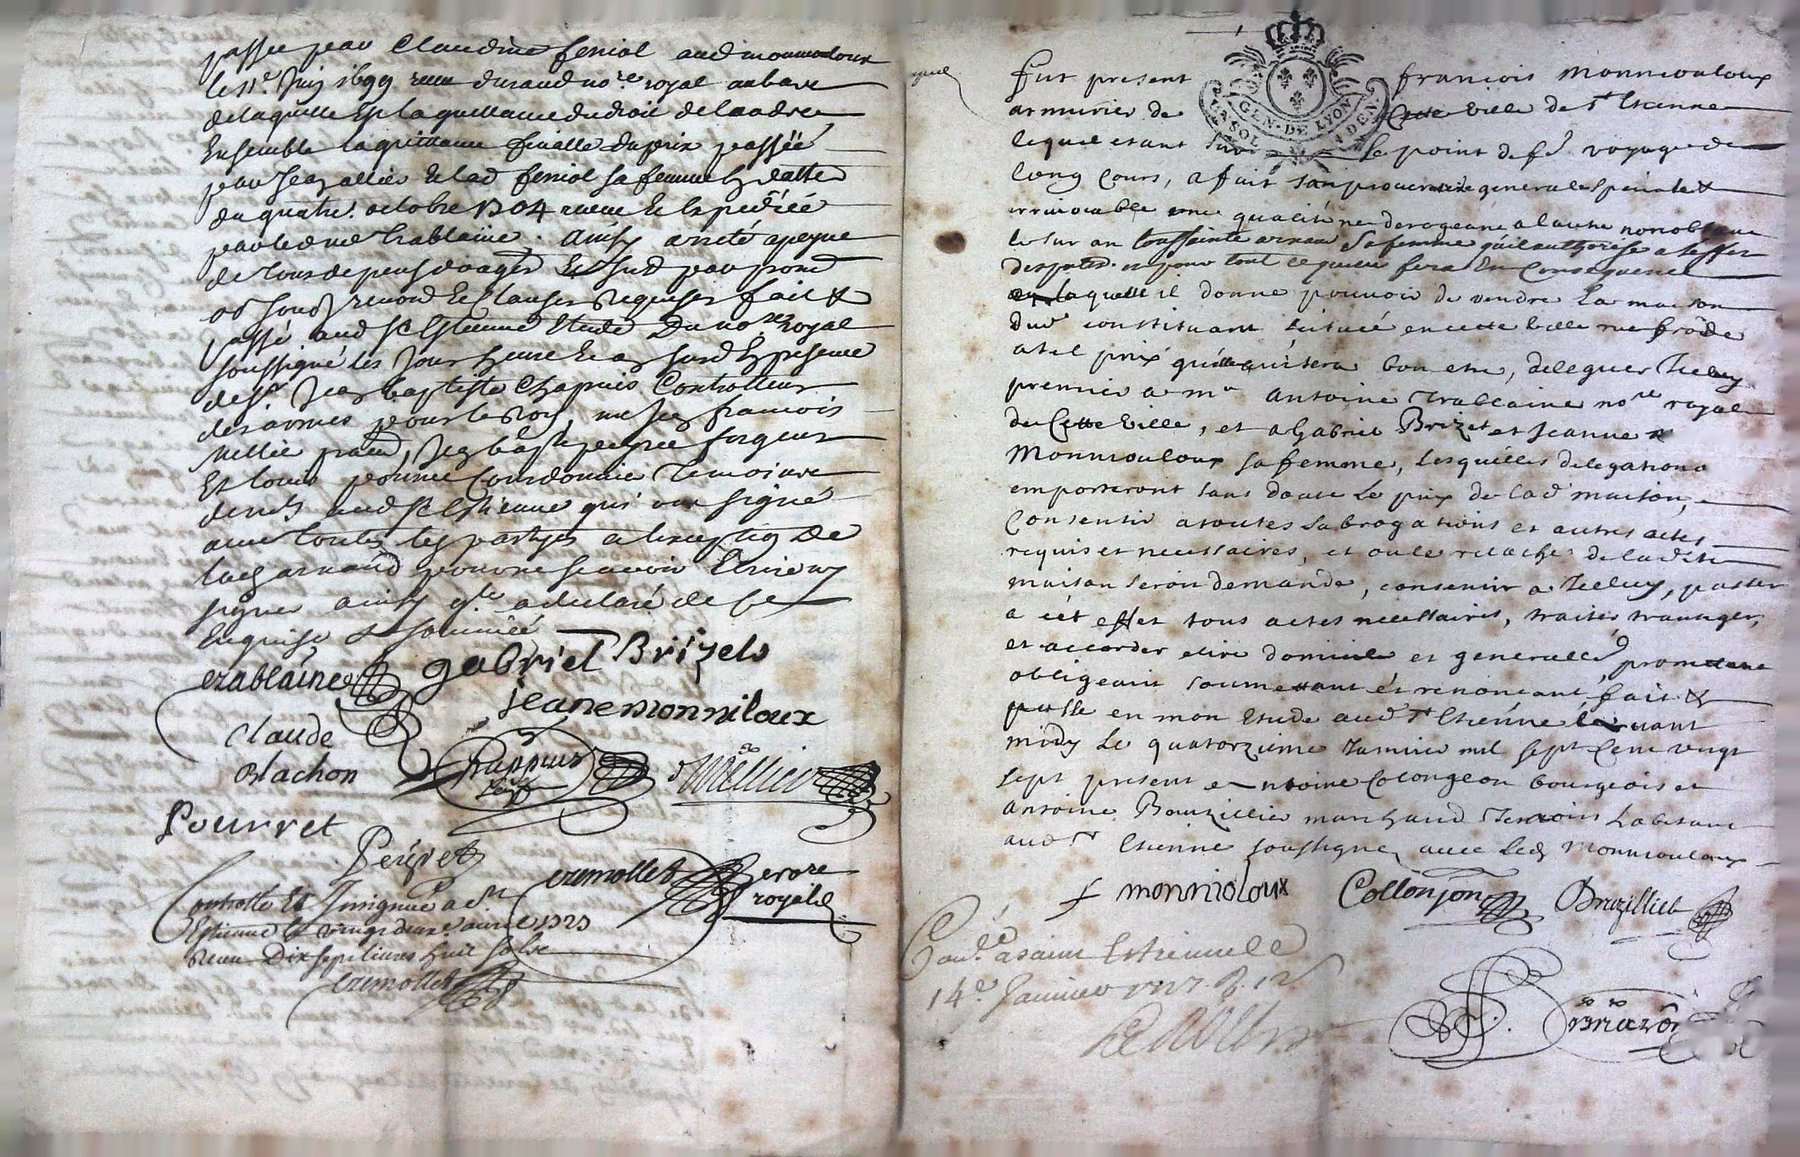 passée par Claudine feriol aud monnouloux
le 11e Juin 1699 receu durand nore royal au bas
de laquelle Est la quittance du droit de laods
Ensemble la quittance finalle du prix passée
par Jean allier & lad feriol sa femme
du quatre octobre 1704 receue & Expediée
par led me Trablaine. Ainsy arreté a peyne
de tous depens domages
renond & Clauses Requises fait &
passé aud St Estienne Etude Du nore royal
soussigné les Jour heure & an susd En presence
de Sr Jean baptiste Chapuis Controlleur
des armes pour le Roy, me Jean francois
mellier prand, Jean bapte peyret forgeur
Et louis pourret Courdonnier Temoins
dud St Estienne qui ont signé
avec toutes les partyes a l'exception de
lad arnaud pour ne scavoir Escrire ny
signer ainsy qlle a declaré de ce
Enquise & sommée
trablaine gabriel Brizets
jeanemonniloux
claude
blachon Chappuis mellier
Pourret
Peyret
cremollet verore
royale
Controllé Et Insinué a St
Estienne le vingt deux avril 1729
Receu Dix sept livres huit sols
cremollet
GEN. DE LYON
Fut present francois monniouloux
armurier de Cette ville de St Etienne
lequel etant sur le point de fe voyage de
long cours, a fait sa procuratrice generale speciale &
irrevocable une qualité ne derogeant a lautre nonobstant
le sur an toussainte arnaud sa femme quil authorise a leffet
des ptes. et pour tout ce quelle fera En Consequence
a laquelle il donne pouvoir de vendre la maison
dud constituant scituée en cette ville rue froide
a tel prix quelle avisera bon etre, deleguer Iceluy
premier a me antoine Trablaine nore royal
de Cette ville, et a Gabriel Brizet et Jeanne
Monniouloux sa femme, lesquelles delegations
emporteront sans doute le prix de lad maison,
Consentir a toutes subrogations et autres actes
requis et necessaires, et ou le relache de ladite
maison seroit demandé, consentir a Iceluy, passer
a cet effet tous actes necessaires, traiter transiger,
et accorder elire domicile et generallet promettant
obligeant soumettant et renoncant, fait &
passé en mon etude aud St Etienne avant
midy le quatorzieme Janvier mil sept Cent vingt
sept present antoine Colongeon bourgeois et
antoine Bouzillier marchand Temoins habitans
aud St Etienne soussignes avec led Monniouloux
f monnioloux Collonjon Bruzillieb
Conle a saint Estienne le
14e Janvier 1727. R. 12s